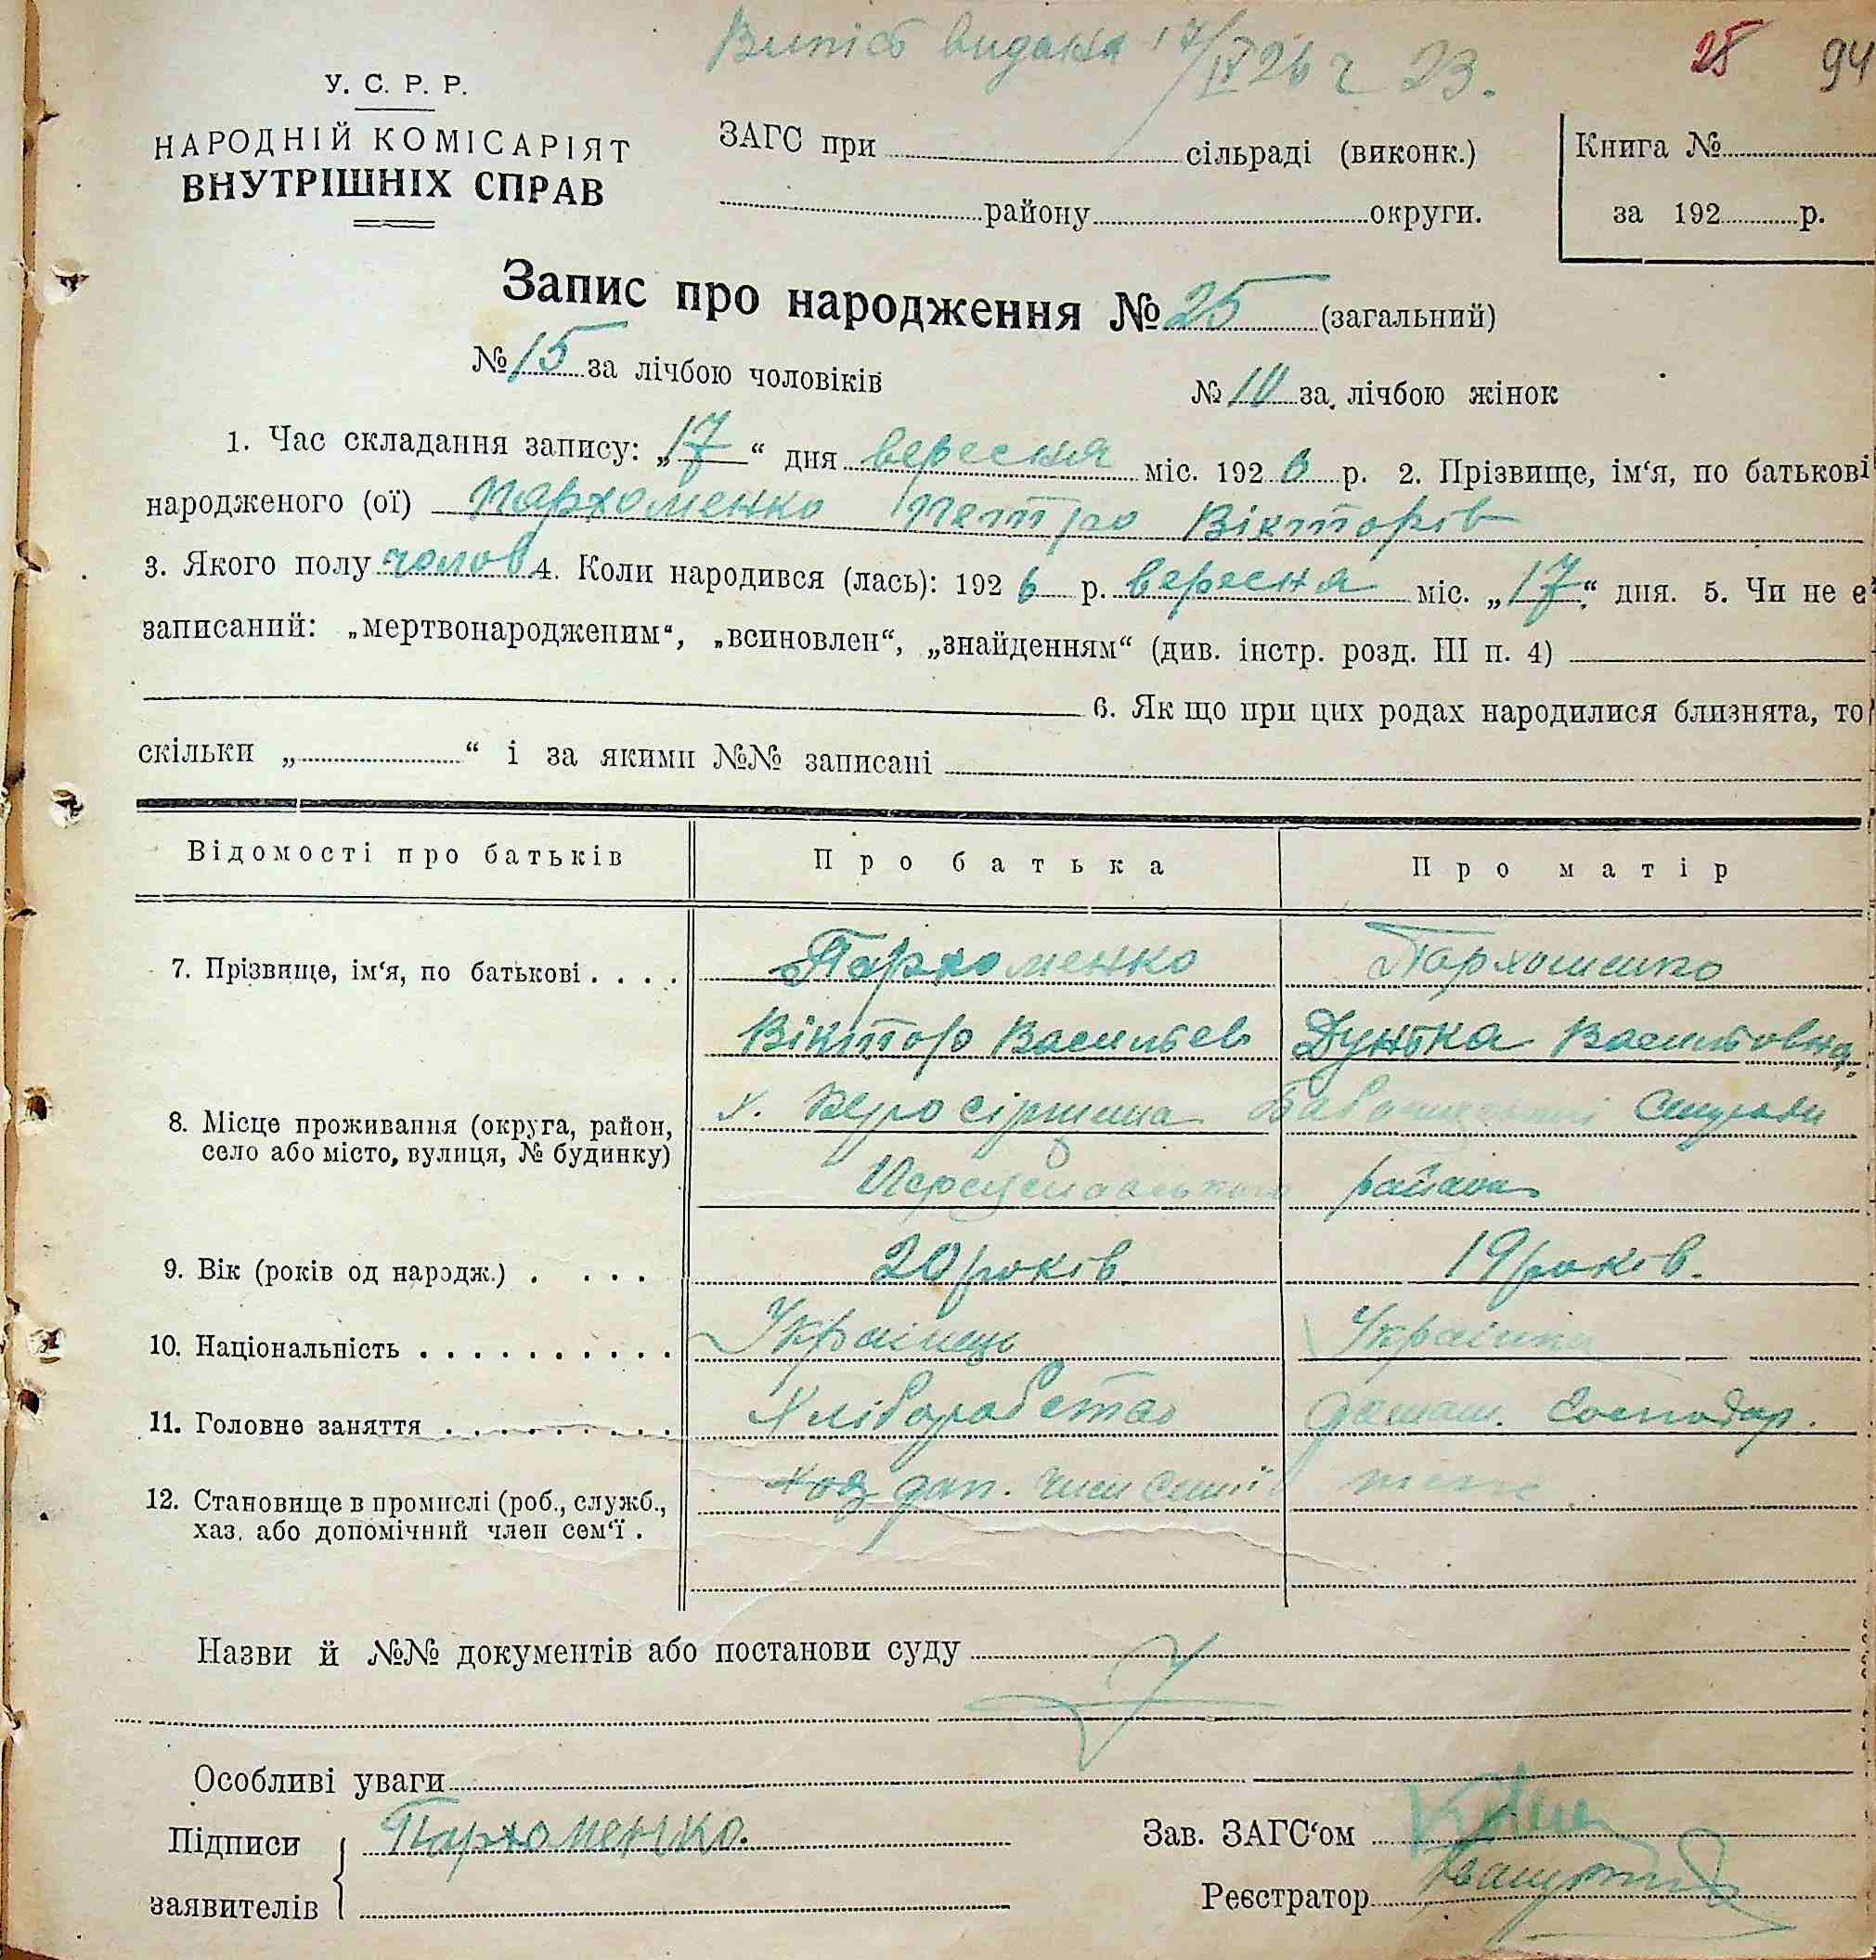 Випіс видана 17/IX 26 г. 23.
25 94
У. С. Р. Р.
НАРОДНІЙ КОМІСАРІЯТ
ВНУТРІШНІХ СПРАВ
ЗАГС при сільраді (виконк.)
району округи.
Книга №
за 192 р.
Запис про народження № 25 (загальний)
№ 15 за лічбою чоловіків № 10 за лічбою жінок
1. Час складання запису: „17“ дня вересня міс. 192 6 р. 2. Прізвище, ім‘я, по батькові
народженого (ої) Пархоменко Петро Вікторів
3. Якого полу чолов 4. Коли народився (лась): 192 6 р. вересня міс. „17“ дня. 5. Чи не є
записаний: „мертвонародженим“, „всиновлен“, „знайденням“ (див. інстр. розд. III п. 4)
6. Як що при цих родах народилися близнята, то
скільки „ “ і за якими №№ записані
Відомості про батьків Про батька Про матір
7. Прізвище, ім‘я, по батькові . . . . Пархоменко Пархоменко
Віктор Васильев Дунька Васильовна
8. Місце проживання (округа, район, х. Сільради
село або місто, вулиця, № будинку) района
9. Вік (років од народж.) . . . . 20 років 19 років.
10. Національність . . . . . . . . . . Українець Українка
11. Головне заняття . . . . . . . . . Хліборобство домаш. господар.
12. Становище в промислі (роб., служб., доп. член семії теж
хаз. або допомічний член сем‘ї .
Назви й №№ документів або постанови суду
Особливі уваги
Підписи Пархоменко. Зав. ЗАГС‘ом
заявителів Реєстратор